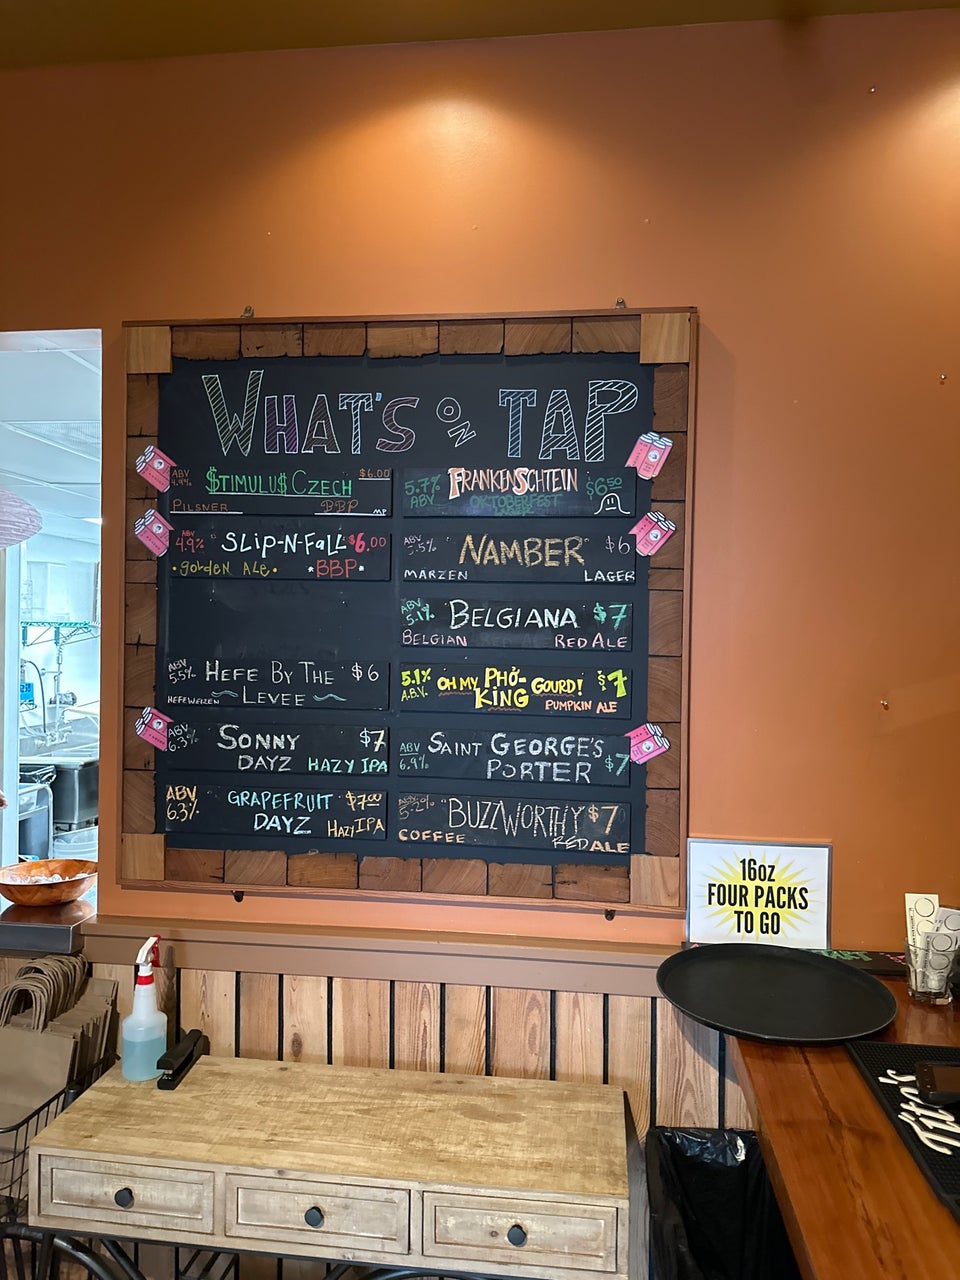 WHAT'S ON TAP
ABV 4.9% $TIMULU$ CZECH $6.00
PILSNER BBP MP
ABV 4.9% SLIP-N-FALL $6.00
•GOLDEN ALE• *BBP*
ABV 5.5% HEFE BY THE LEVEE $6
HEFEWEIZEN
ABV 6.3% SONNY DAYZ $7
HAZY IPA
ABV 6.3% GRAPEFRUIT DAYZ $7.00
HAZY IPA
5.7% ABV FRANKENSCHTEIN $6.50
OKTOBERFEST
ABV 5.5% NAMBER $6
MARZEN LAGER
ABV 5.1% BELGIANA $7
BELGIAN RED ALE
5.1% A.B.V. OH MY PHỞ-KING GOURD! $7
PUMPKIN ALE
ABV 6.9% SAINT GEORGE'S PORTER $7
ABV 5.2% "BUZZWORTHY $7
COFFEE RED ALE
16oz
FOUR PACKS
TO GO
Tito's